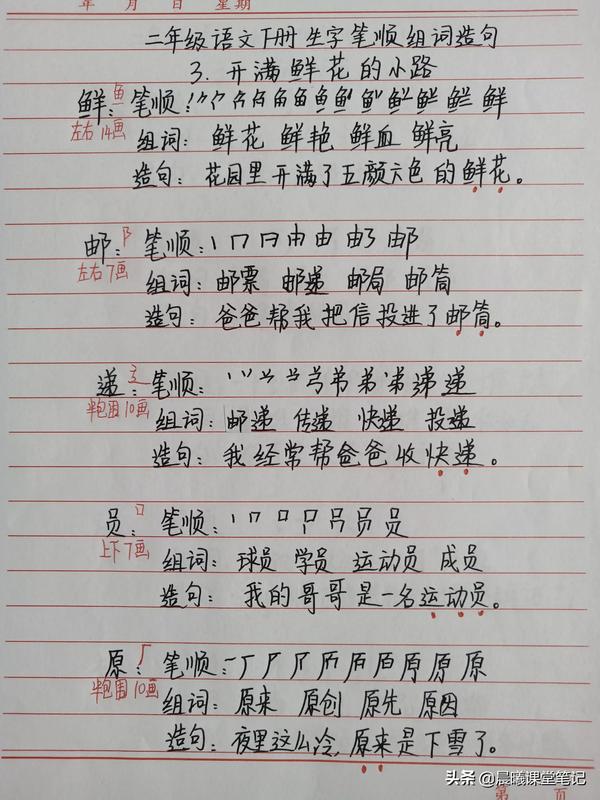 年 月 日 星期
二年级语文下册生字笔顺组词造句
3. 开满鲜花的小路
鲜：鱼 笔顺：
左右 14画 组词：鲜花 鲜艳 鲜血 鲜亮
造句：花园里开满了五颜六色的鲜花。
邮：阝 笔顺：丨 冂 日 由 由 邮
左右 7画 组词：邮票 邮递 邮局 邮筒
造句：爸爸帮我把信投进了邮筒。
递：辶 笔顺：弟 递
半包围 10画 组词：邮递 传递 快递 投递
造句：我经常帮爸爸收快递。
员：口 笔顺：丨 冂 口 员 员
上下 7画 组词：球员 学员 运动员 成员
造句：我的哥哥是一名运动员。
原：厂 笔顺：一 厂 原 原
半包围 10画 组词：原来 原创 原先 原因
造句：夜里这么冷，原来是下雪了。
头条 @晨曦课堂笔记
第 页